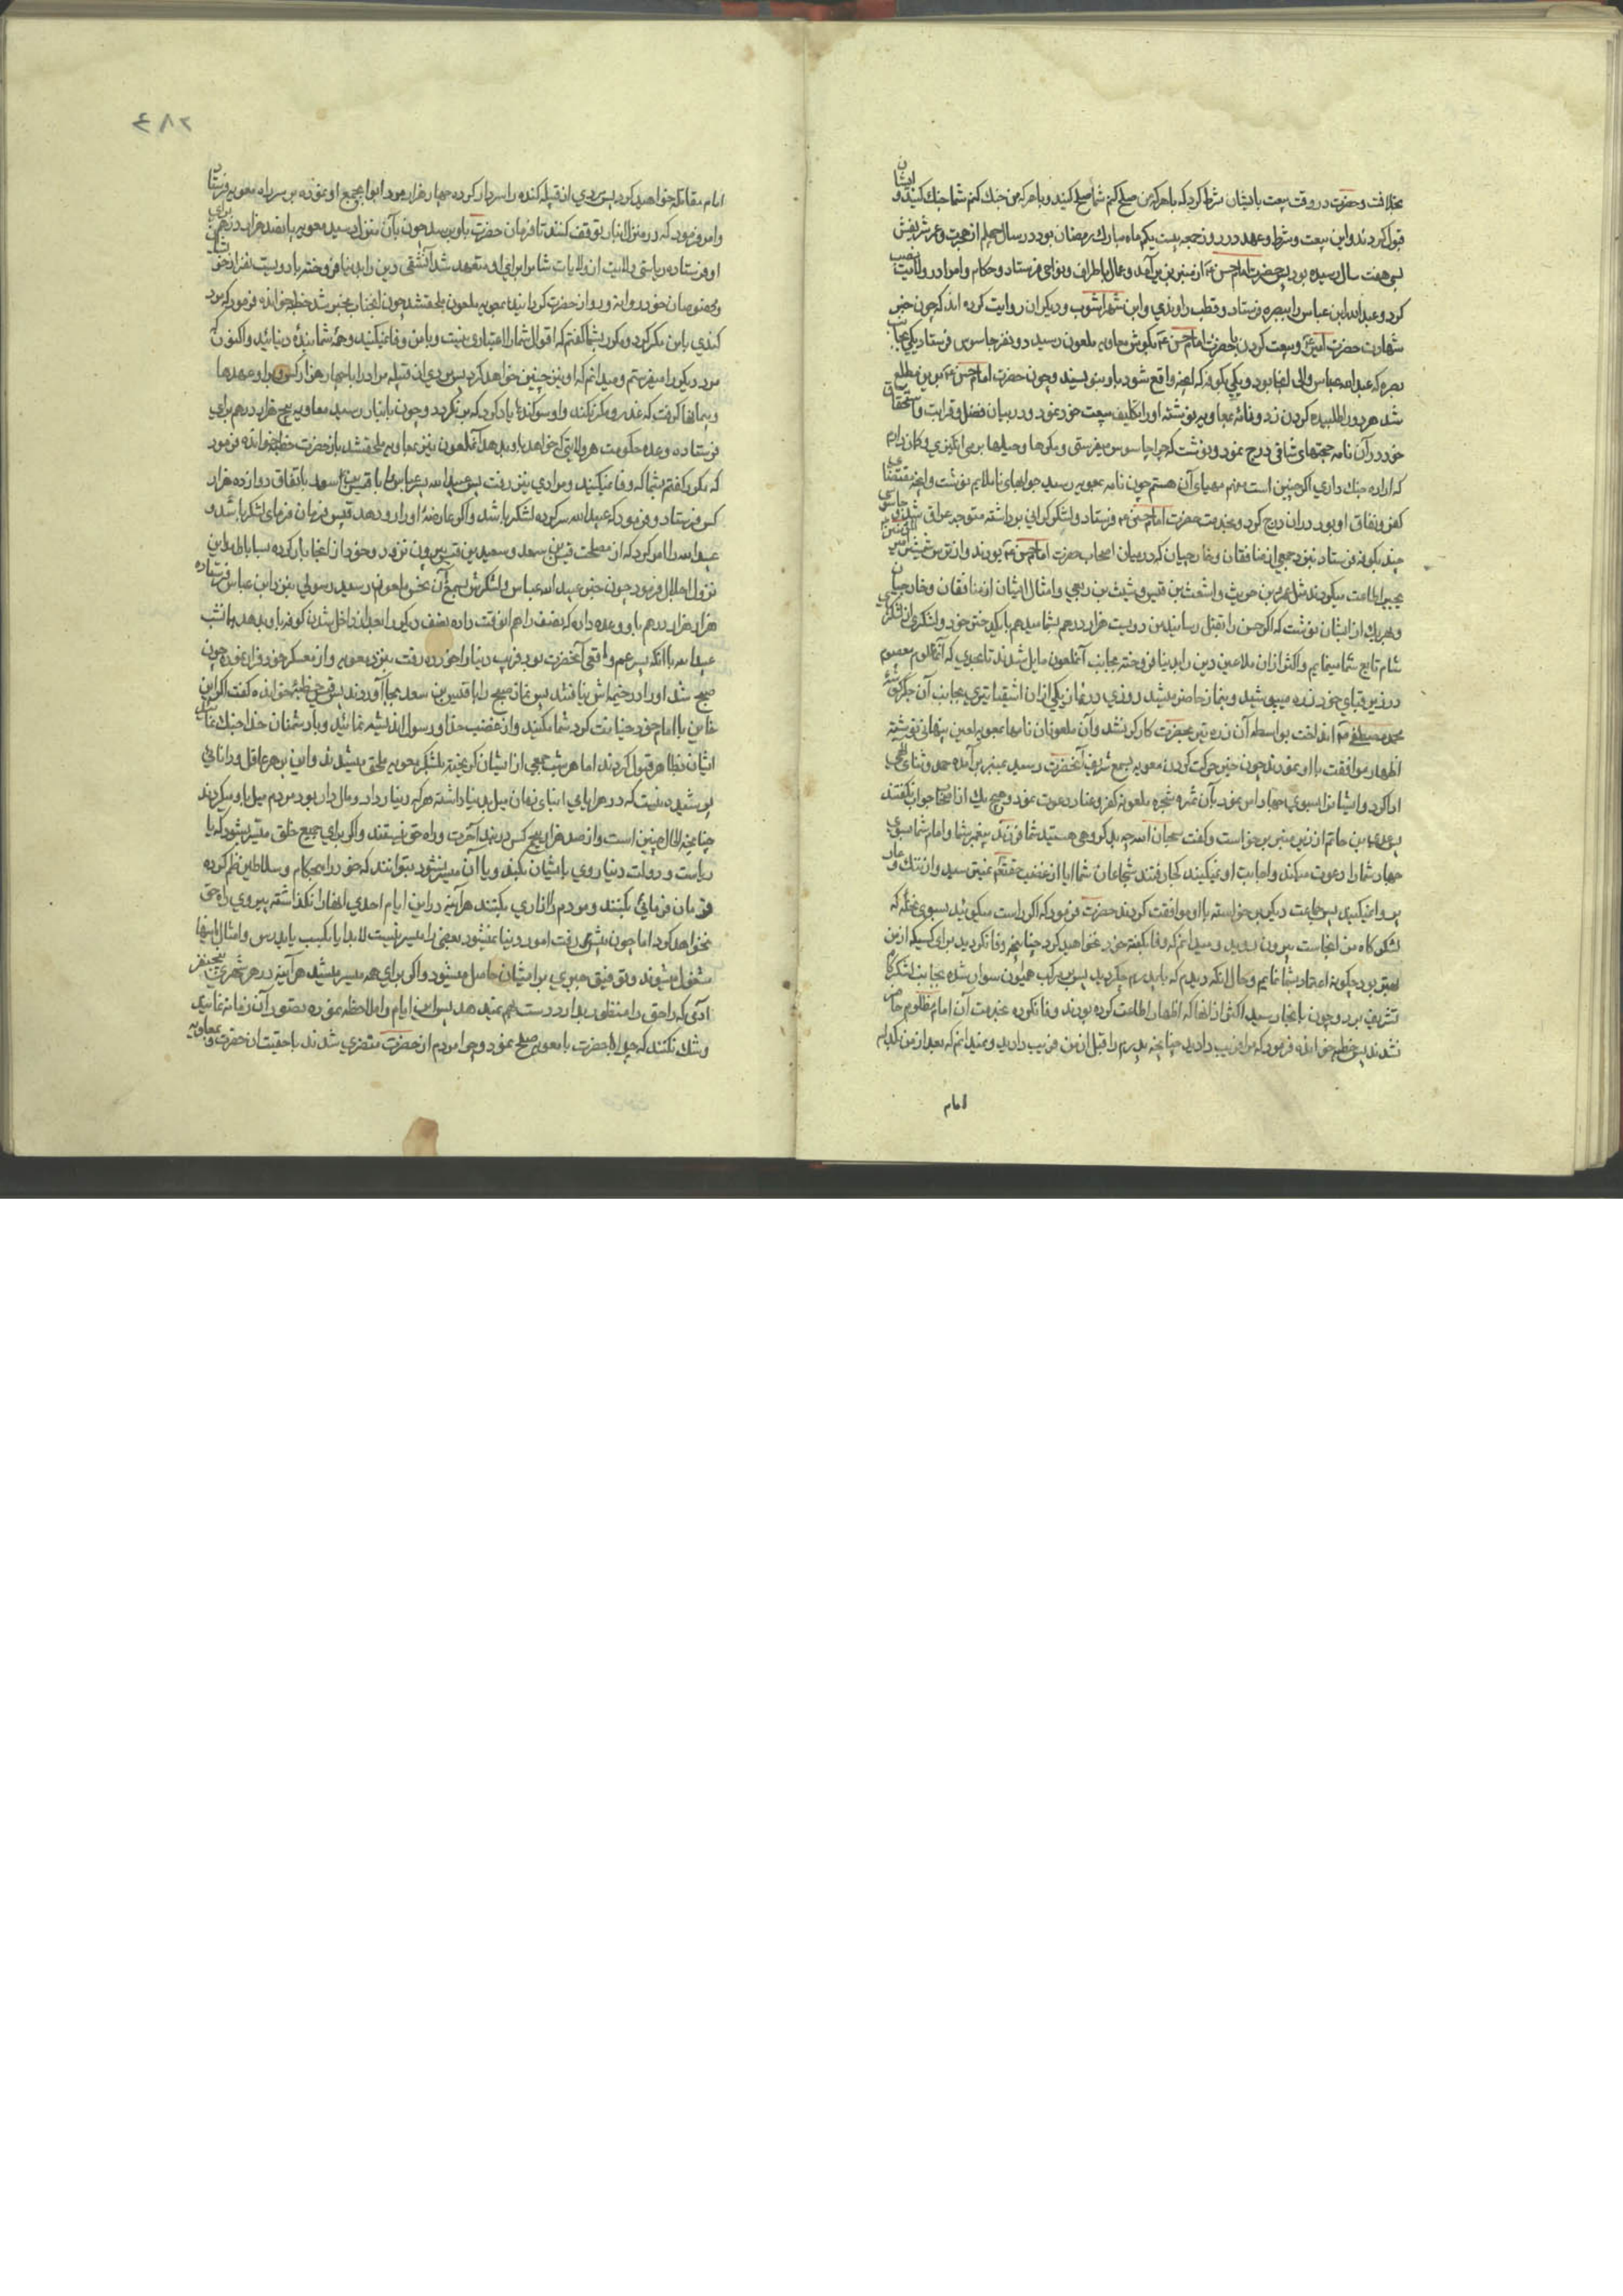 بخلافت و حضرت در وقت بیعت بایشان شرط کرد که با هر که من صلح کنم شما صلح کنید و با هر که من جنک کنم شما جنک کنید و ایشان
قبول کردند و این بیعت و شرط و عهد در روز جمعه بیست یکم ماه مبارک رمضان بود در سال چهلم از هجرت و عمر شریفش
بسی هفت سال رسیده بود پس حضرت امام حسن ع از منبر بزیر آمد و عمال باطراف و نواحی فرستاد و حکام و امرا در ولایت نصب
کرد و عبدالله ابن عباس را ببصره فرستاد و قطب راوندی و ابن شهراشوب و دیکران روایت کرده اند که چون خبر
شهادت حضرت امیر ع و بیعت کردن با حضرت امام حسن ع بکوش معاویه ملعون رسید دو نفر جاسوس فرستاد یکی بجانب
بصره که عبدالله عباس والی انجا بود و یکی بکوفه که انچه واقع شود باو بنویسند و چون حضرت امام حسن ع برین مطلع
شد هر دو را طلبیده کردن زد و نامهٔ بمعاویه نوشته او را تکلیف بیعت خود نمود و در بیان فضل و قرابت و استحقاق
خود در آن نامه حجتهای شافی درج نمود و نوشت که چرا جاسوس میفرستی و مکرها و حیلها بر می انکیزی و کمان دارم
که اراده جنک داری اکر چنین است منهم مهیای آن هستم چون نامه بمعویه رسید جوابهای ناملایم نوشت و انچه مقتضای
کفر و نفاق او بود در ان درج کرد و بخدمت حضرت امام حسن ع فرستاد و لشکر کرانی برداشته متوجه عراق شد و جاسوسی
چند بکوفه فرستاد بنزد جمعی از منافقان و خارجیان که در میان اصحاب حضرت امام حسن ع بودند و از ترس شمشیر امیر المؤمنین
بجبر اطاعت میکردند مثل عمرو بن حریث و اشعث بن قیس و شبث بن ربعی و امثال ایشان از منافقان و خارجیان
و بهر یک از ایشان نوشت که اکر حسن را بقتل رسانید من دویست هزار درهم بشما میدهم با یکدختر خود و لشکری از لشکرهای
شام تابع شما مینمایم و اکثر از ان ملاعین دین را بدنیا فروخته بجانب آنملعون مایل شدند تا بحدی که آنمظلوم معصوم
در زیر قبای خود زره میپوشید و بنماز حاضر میشد روزی در نماز یکی از ان اشقیا تیری بجانب آن جکر کوشهٔ
محمد مصطفی ص انداخت بواسطه آن زره تیر بحضرت کارکر نشد و آن ملعونان نامها بمعویه لعین پنهانی نوشته
اظهار موافقت با او نمودند چون خبر حرکت کردن معویه بسمع شریف آنحضرت رسید بمنبر بر آمده حمد و ثنای الهی
ادا کرد و ایشانرا بسوی جهاد امر نمود بآن ثمره شجره ملعونه کفر و عناد دعوت نمود و هیچ یک از اصحاب جواب نکفتند
پس عدی بن حاتم از زیر منبر بر خواست و کفت سبحان الله چه بد کروهی هستید شما فرزند پیغمبر شما و امام شما بسوی
جهاد شما را دعوت میکند و اجابت او نمیکنید کجا رفتند شجاعان شما ایا از غضب حقتعالی نمیترسید و از ننک و عار
پروا نمیکنید پس جماعت دیکر بر خواسته با او موافقت کردند حضرت فرمود که اکر راست میکوئید بسوی نخیله که
لشکرکاه من انجاست بیرون روید و میدانم که وفا بکفته خود نخواهید کرد چنانچه وفا نکردید برای کسیکه از من
بهتر بود چکونه اعتماد بشما نمایم و حال انکه دیدم که با پدرم چه کردید پس بمرکب همایون سوار شده بجانب لشکرکاه
تشریف برد و چون بانجا رسید اکثر از انها که اظهار اطاعت کرده بودند وفا نکرده بخدمت آن امام مظلوم حاضر
نشدند پس خطبه خوانده فرمود که مرا فریب دادید چنانچه پدرم را قبل از من فریب دادید و نمیدانم که بعد از من با کدام
امام
۲۸۴
امام مقاتله خواهید کرد پس مردی از قبیله کنده را سردار کرده چهار هزار مرد ابوابجمع او نموده بر سر راه معویه فرستاد
و امر فرمود که در منزل انبار توقف کنند تا فرمان حضرت باو برسد چون بآن منزل رسید معویه پانصد هزار درهم برای
او فرستاده ریاستی ولایت از ولایات شام برای او متعهد شد آنشقی دین را بدنیا فروخته با دویست نفر از خویشان
و مخصوصان خود رو از حضرت کردانیده بمعویه ملعون ملحق شد چون انجناب مخبر شد خطبه خوانده فرمود که مرد
کندی با من مکر کرد و مکرر بشما کفتم که اقوال شما را اعتباری نیست و با من وفا نمیکنید و همهٔ شما بندهٔ دنیائید و اکنون
مرد دیکر را میفرستم و میدانم که او نیز چنین خواهد کرد پس مردی از قبیله مراد را با چهار هزار کس و از او عهدها
و پیمانها کرفت که غدر و مکر نکند و او سوکندها یاد کرد که من نکردد و چون بانبار رسید معاویه پنج هزار درهم برای
فرستاده وعده حکومت هر ولایتی که خواهد باو بدهد آنملعون نیز بمعاویه ملحق شد باز حضرت خطبه خوانده فرمود
که مکرر کفتم بشما که وفا نمیکنید و مرادی نیز رفت پس عبیدالله بن عباس را با قیس بن سعد باتفاق دوازده هزار
کس فرستاد و فرمود که عبیدالله سرکرده لشکر باشد و اکر عارضهٔ او را رو دهد قیس فرمان فرمای لشکر باشد و
عبیدالله را امر کرد که از مصلحت قیس بن سعد و سعید بن قیس بیرون نرود و خود از انجا بار کرده بساباط مداین
نزول اجلال فرمود چون خبر عبیدالله عباس و لشکرش بسمع آن نحس ملعون رسید رسولی بنزد ابن عباس فرستاده
هزار هزار درهم باو وعده داد که نصف را هم انوقت داده نصف دیکر را بعد از داخل شدن کوفه باو بدهد همانشب
عبیدالله با انکه پسر عم واقعی آنحضرت بود فریب دنیا را خورده رفت بنزد معویه و از معسکر خود فرار نموده چون
صبح شد او را در خیمه اش نیافتند پس نماز صبح را با قیس بن سعد بجا آوردند پس قیس خطبهٔ خوانده کفت اکر این
خاین با امام خود خیانت کرد شما مکنید و از غضب خدا و رسول اندیشه نمائید و با دشمنان خدا جنک نمائید
ایشان بظاهر قبول کردند اما هر شب جمعی از ایشان کریخته بلشکر معویه ملحق میشدند و این بر هر عاقل و دانائی
پوشیده نیست که در هر ایامی ابنای زمان میل بدنیا داشته هر که دنیا دار و مال دار بود مردم میل باو میکردند
چنانچه الحال چنین است و از صد هزار هیچ کس در بند آخرت و راه حق نیستند و اکر برای جمیع خلق میسر میشود که با
ریاست و دولت دنیا روی بایشان بکند و یا آن میسر نشود بتوانند که خود را بحکام و سلاطین نظم کرده
فرمان فرمائی بکنند و مردم را ازاری بکنند هر آینه در این ایام احدی انها را نکذاشته پیروی راه حق
نخواهد کرد اما چون پیشرفت امور دنیا نمیشود بعضی را میسر نیست لابد یا بکسب یا بدرس و امثال اینها
مشغول میشوند و توفیق جبری برایشان حاصل میشود و اکر برای همه میسر میشد هر آینه در هر شهری
آدمی که راه حق را منظور بدارد دست بهم نمیدهد پس این ایام را ملاحظه نموده تصور آن زمانه نمائید
و شک نکنید که چرا حضرت با معویه صلح نمود و چرا مردم از حضرت متضری شدند با حقیت ان حضرت و بمعاویه